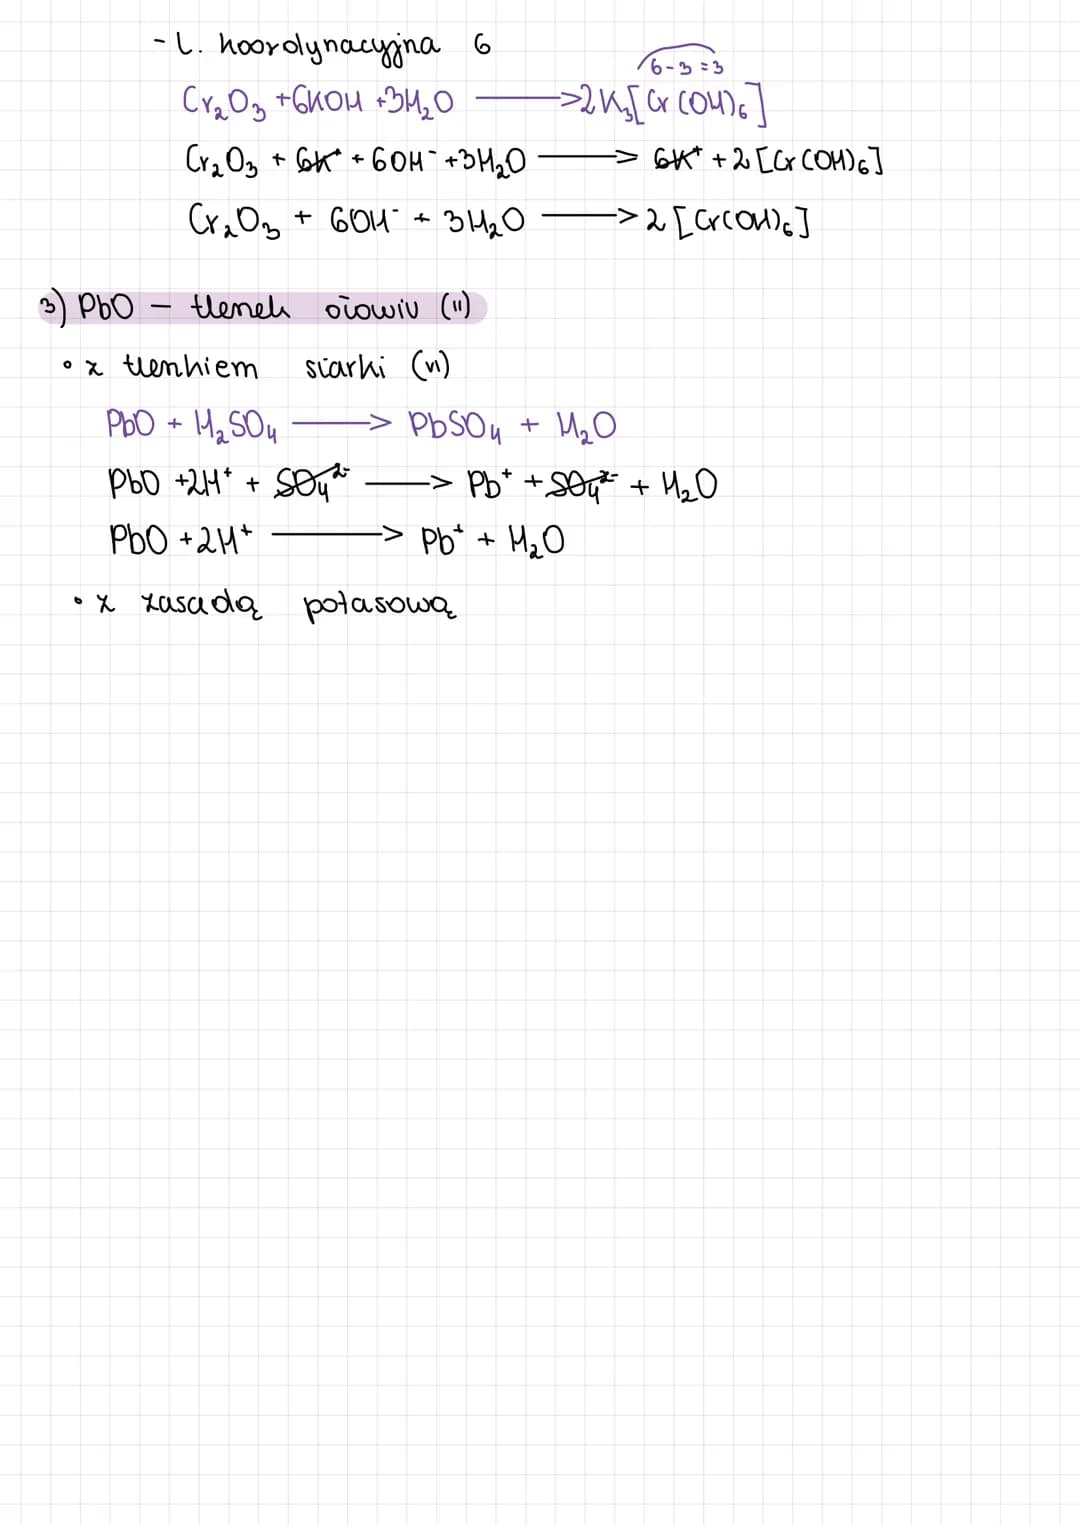 - l. koordynacyjna 6
6-3=3
Cr₂O₃ + 6KOH + 3H₂O ⟶ 2K₃[Cr(OH)₆]
Cr₂O₃ + 6K⁺ + 6OH⁻ + 3H₂O ⟶ 6K⁺ + 2[Cr(OH)₆]
Cr₂O₃ + 6OH⁻ + 3H₂O ⟶ 2[Cr(OH)₆]
3) PbO – tlenek ołowiu (II)
• z tlenkiem siarki (VI)
PbO + H₂SO₄ ⟶ PbSO₄ + H₂O
PbO + 2H⁺ + SO₄²⁻ ⟶ Pb⁺ + SO₄²⁻ + H₂O
PbO + 2H⁺ ⟶ Pb⁺ + H₂O
• z zasadą potasową